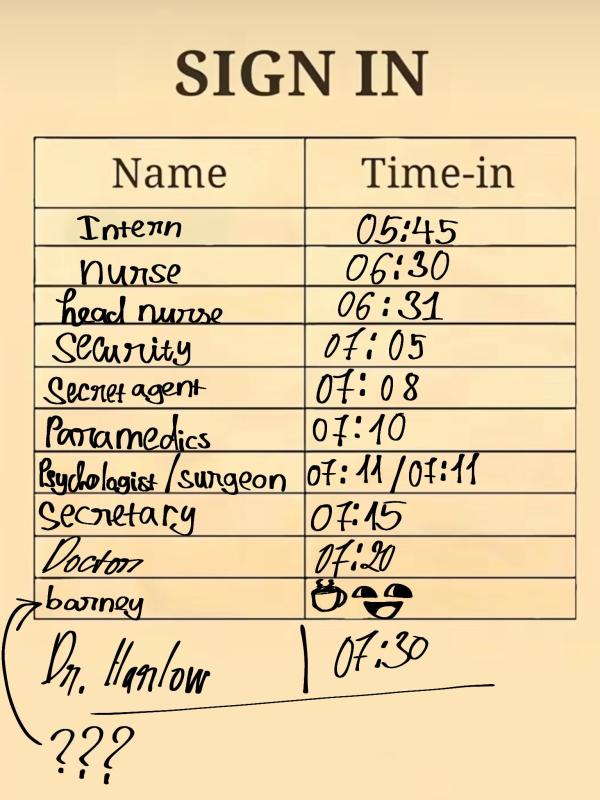 SIGN IN
Name Time-in
Intern 05:45
nurse 06:30
head nurse 06:31
Security 07:05
Secret agent 07:08
Paramedics 07:10
Psychologist/surgeon 07:11/07:11
Secretary 07:15
Doctor 07:20
barney
Dr. Harlow 07:30
???